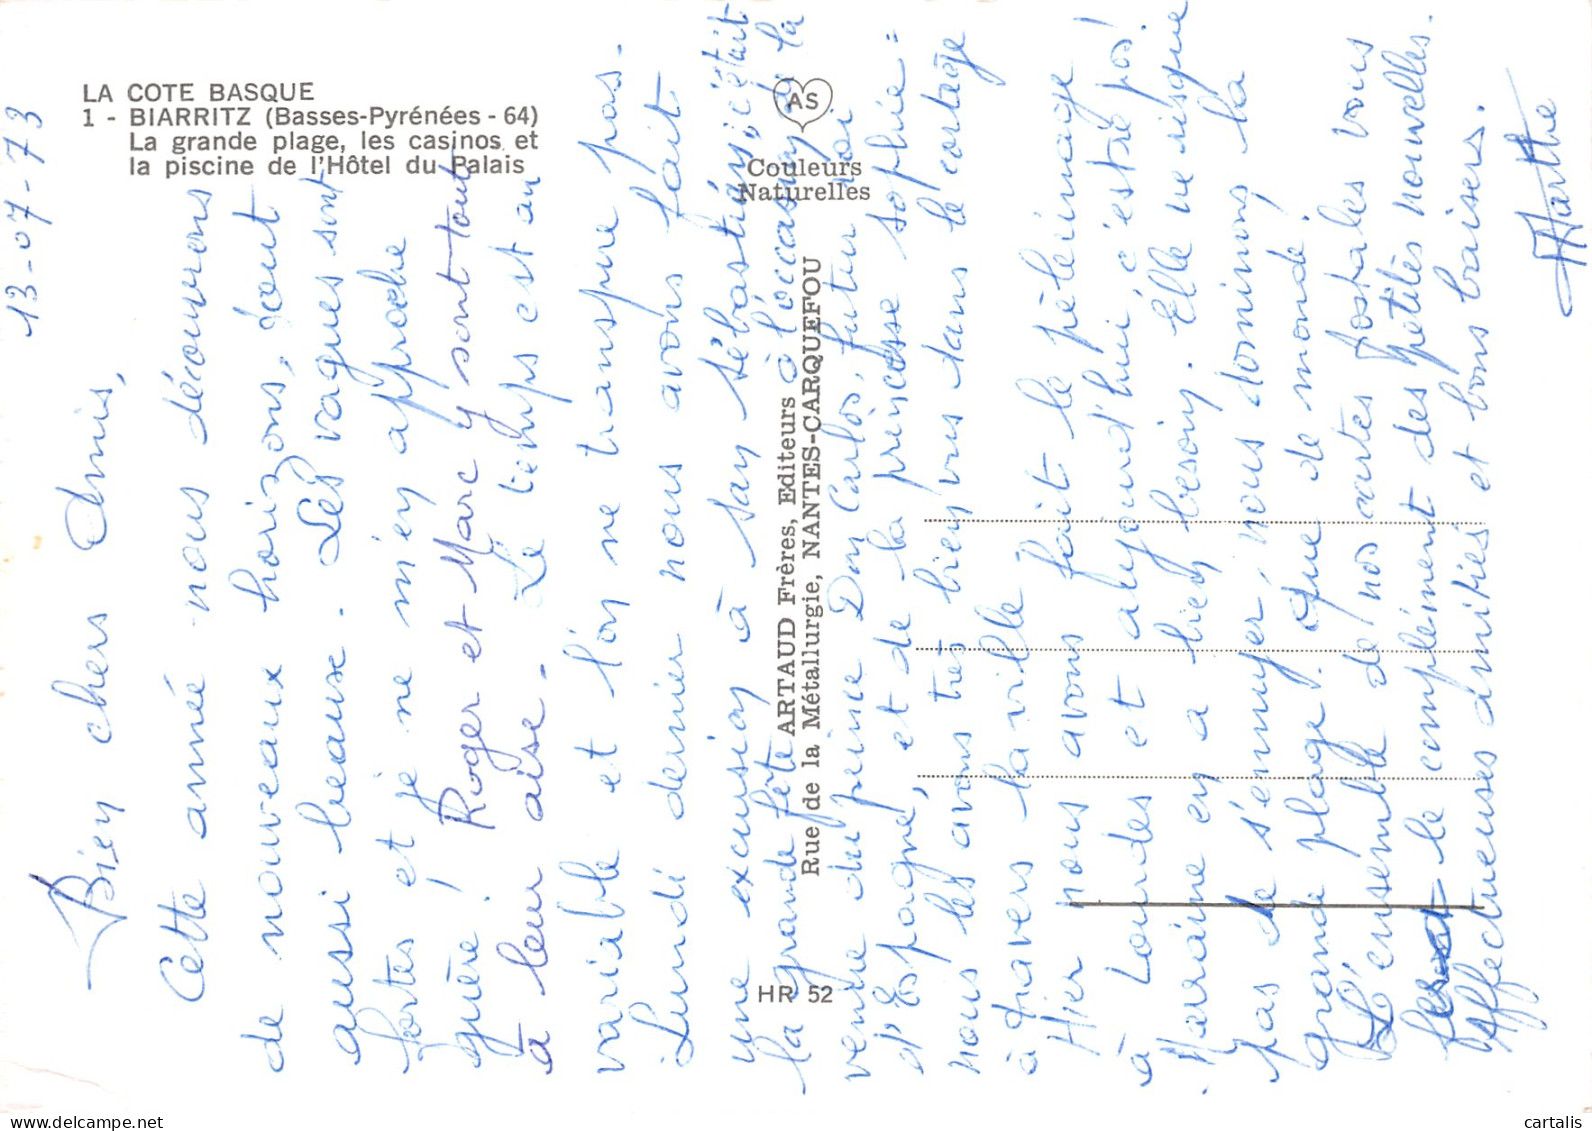 LA COTE BASQUE
1 - BIARRITZ (Basses-Pyrénées - 64)
La grande plage, les casinos et
la piscine de l'Hôtel du Palais
AS
Couleurs
Naturelles
ARTAUD Frères, Editeurs
Rue de la Métallurgie, NANTES-CARQUEFOU
HR 52
13-07-73
Bien chers Amis,
Cette année nous découvrons
de nouveaux horizons, tout
aussi beaux. Les vagues sont
fortes et je ne m'en approche
guère! Roger et Marc y sont tout
à leur aise. Le temps est au
variable et l'on ne transpire pas.
Lundi dernier nous avons fait
une excusion à san sébastian; c'était
la grande fête à l'occasion de la
venue du prince Don Carlos, futur roi
d'Espagne, et de la princesse sophie =
nous les avons très bien vus dans le cortège
à travers la ville
Hier nous avons fait le pèlerinage
à Lourdes et aujourd'hui c'estrépos!
Marraine en a bien besoin. Elle ne risque
pas de s'ennuyer, nous dominons la
grande plage. que de monde!
L'ensemble de nos cartes postales vous
fera le complément des petites nouvelles.
Affectueuses amitiés et bons baisers.
Marthe
cartalis